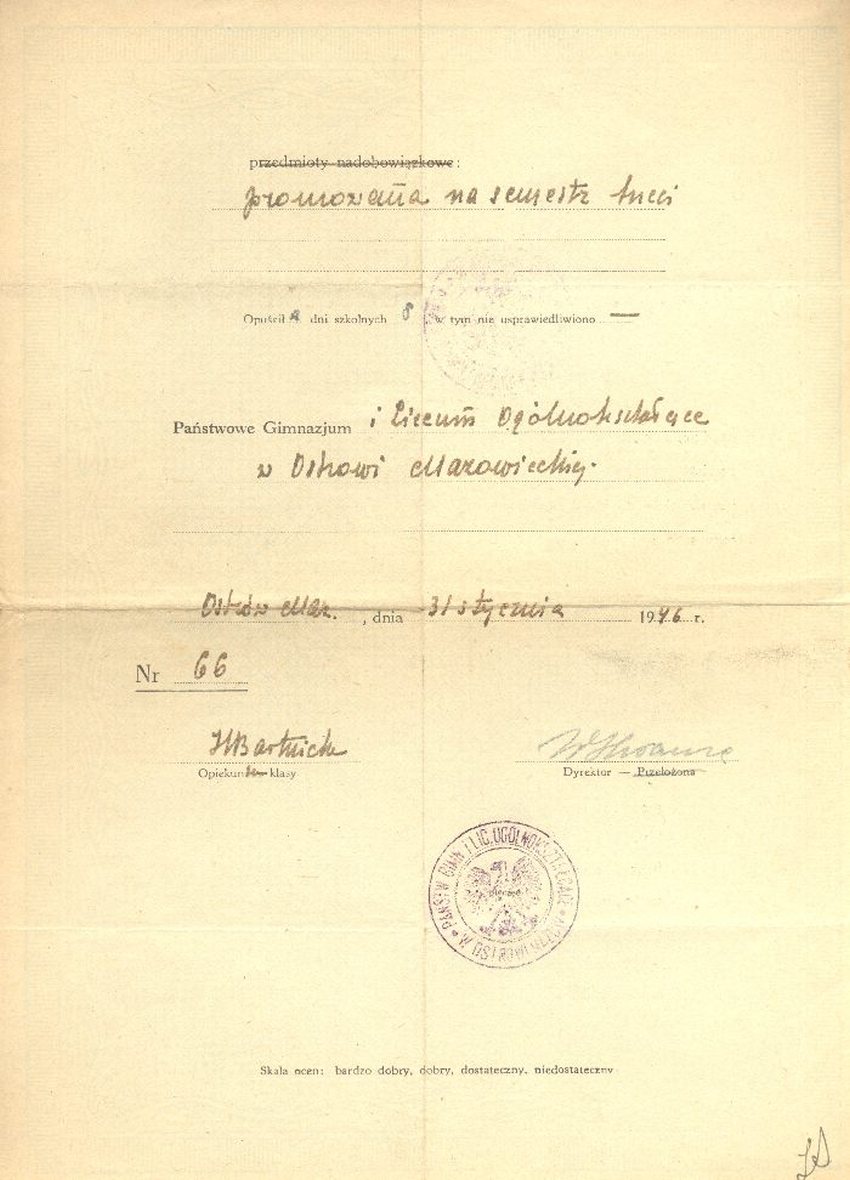 przedmioty nadobowiązkowe:
promowana na semestr trzeci
Opuścił a dni szkolnych 8 w tym nie usprawiedliwiono —
Państwowe Gimnazjum i Liceum Ogólnokształcące
w Ostrowi Mazowieckiej.
Ostrów Maz. , dnia 31 stycznia 1946 r.
Nr 66
HBartnicka
Opiekun klasy
Dyrektor — Przełożona
PAŃSTW. GIMN. I LIC. OGÓLNOKSZTAŁCĄCE
W OSTROWI MAZOW.
Skala ocen: bardzo dobry, dobry, dostateczny, niedostateczny